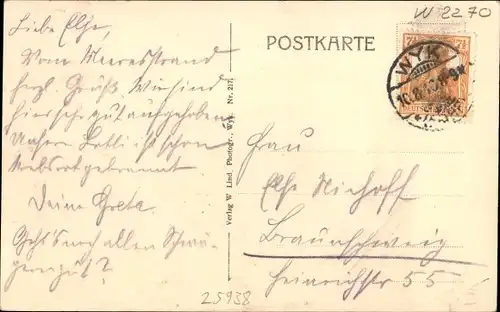 W 2270
POSTKARTE
7½ 7½
WYK
Liebe Else,
Vom Meeresstrand
herzl. Grüße. Wir sind
hier sehr gut aufgehoben.
Unsere Lotti ist schon
krebsrot gebrannt
Deine Grete
Geht's noch allen
gut?
Verlag W Lind, Photogr., Wyk. Nr. 217.
Frau
Else Niehoff
Braunschweig
Heinrichstr 55
25938